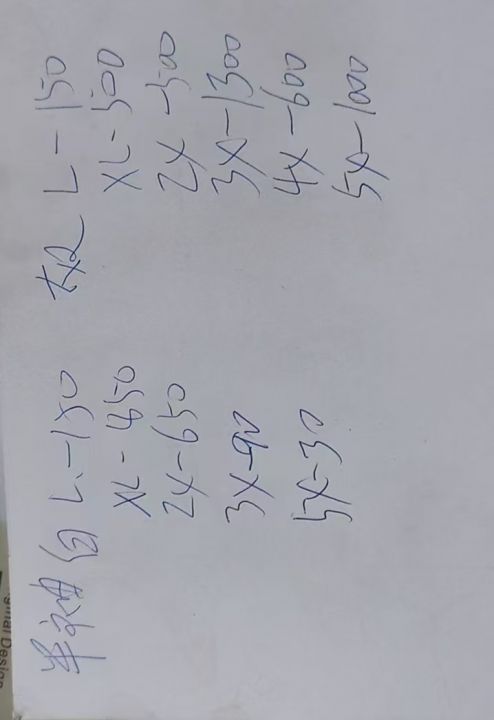 L-150
XL-450
2X-650
3X-90
5X-30
L-150
XL-500
2X-500
3X-1300
4X-600
5X-1000
ginal Design